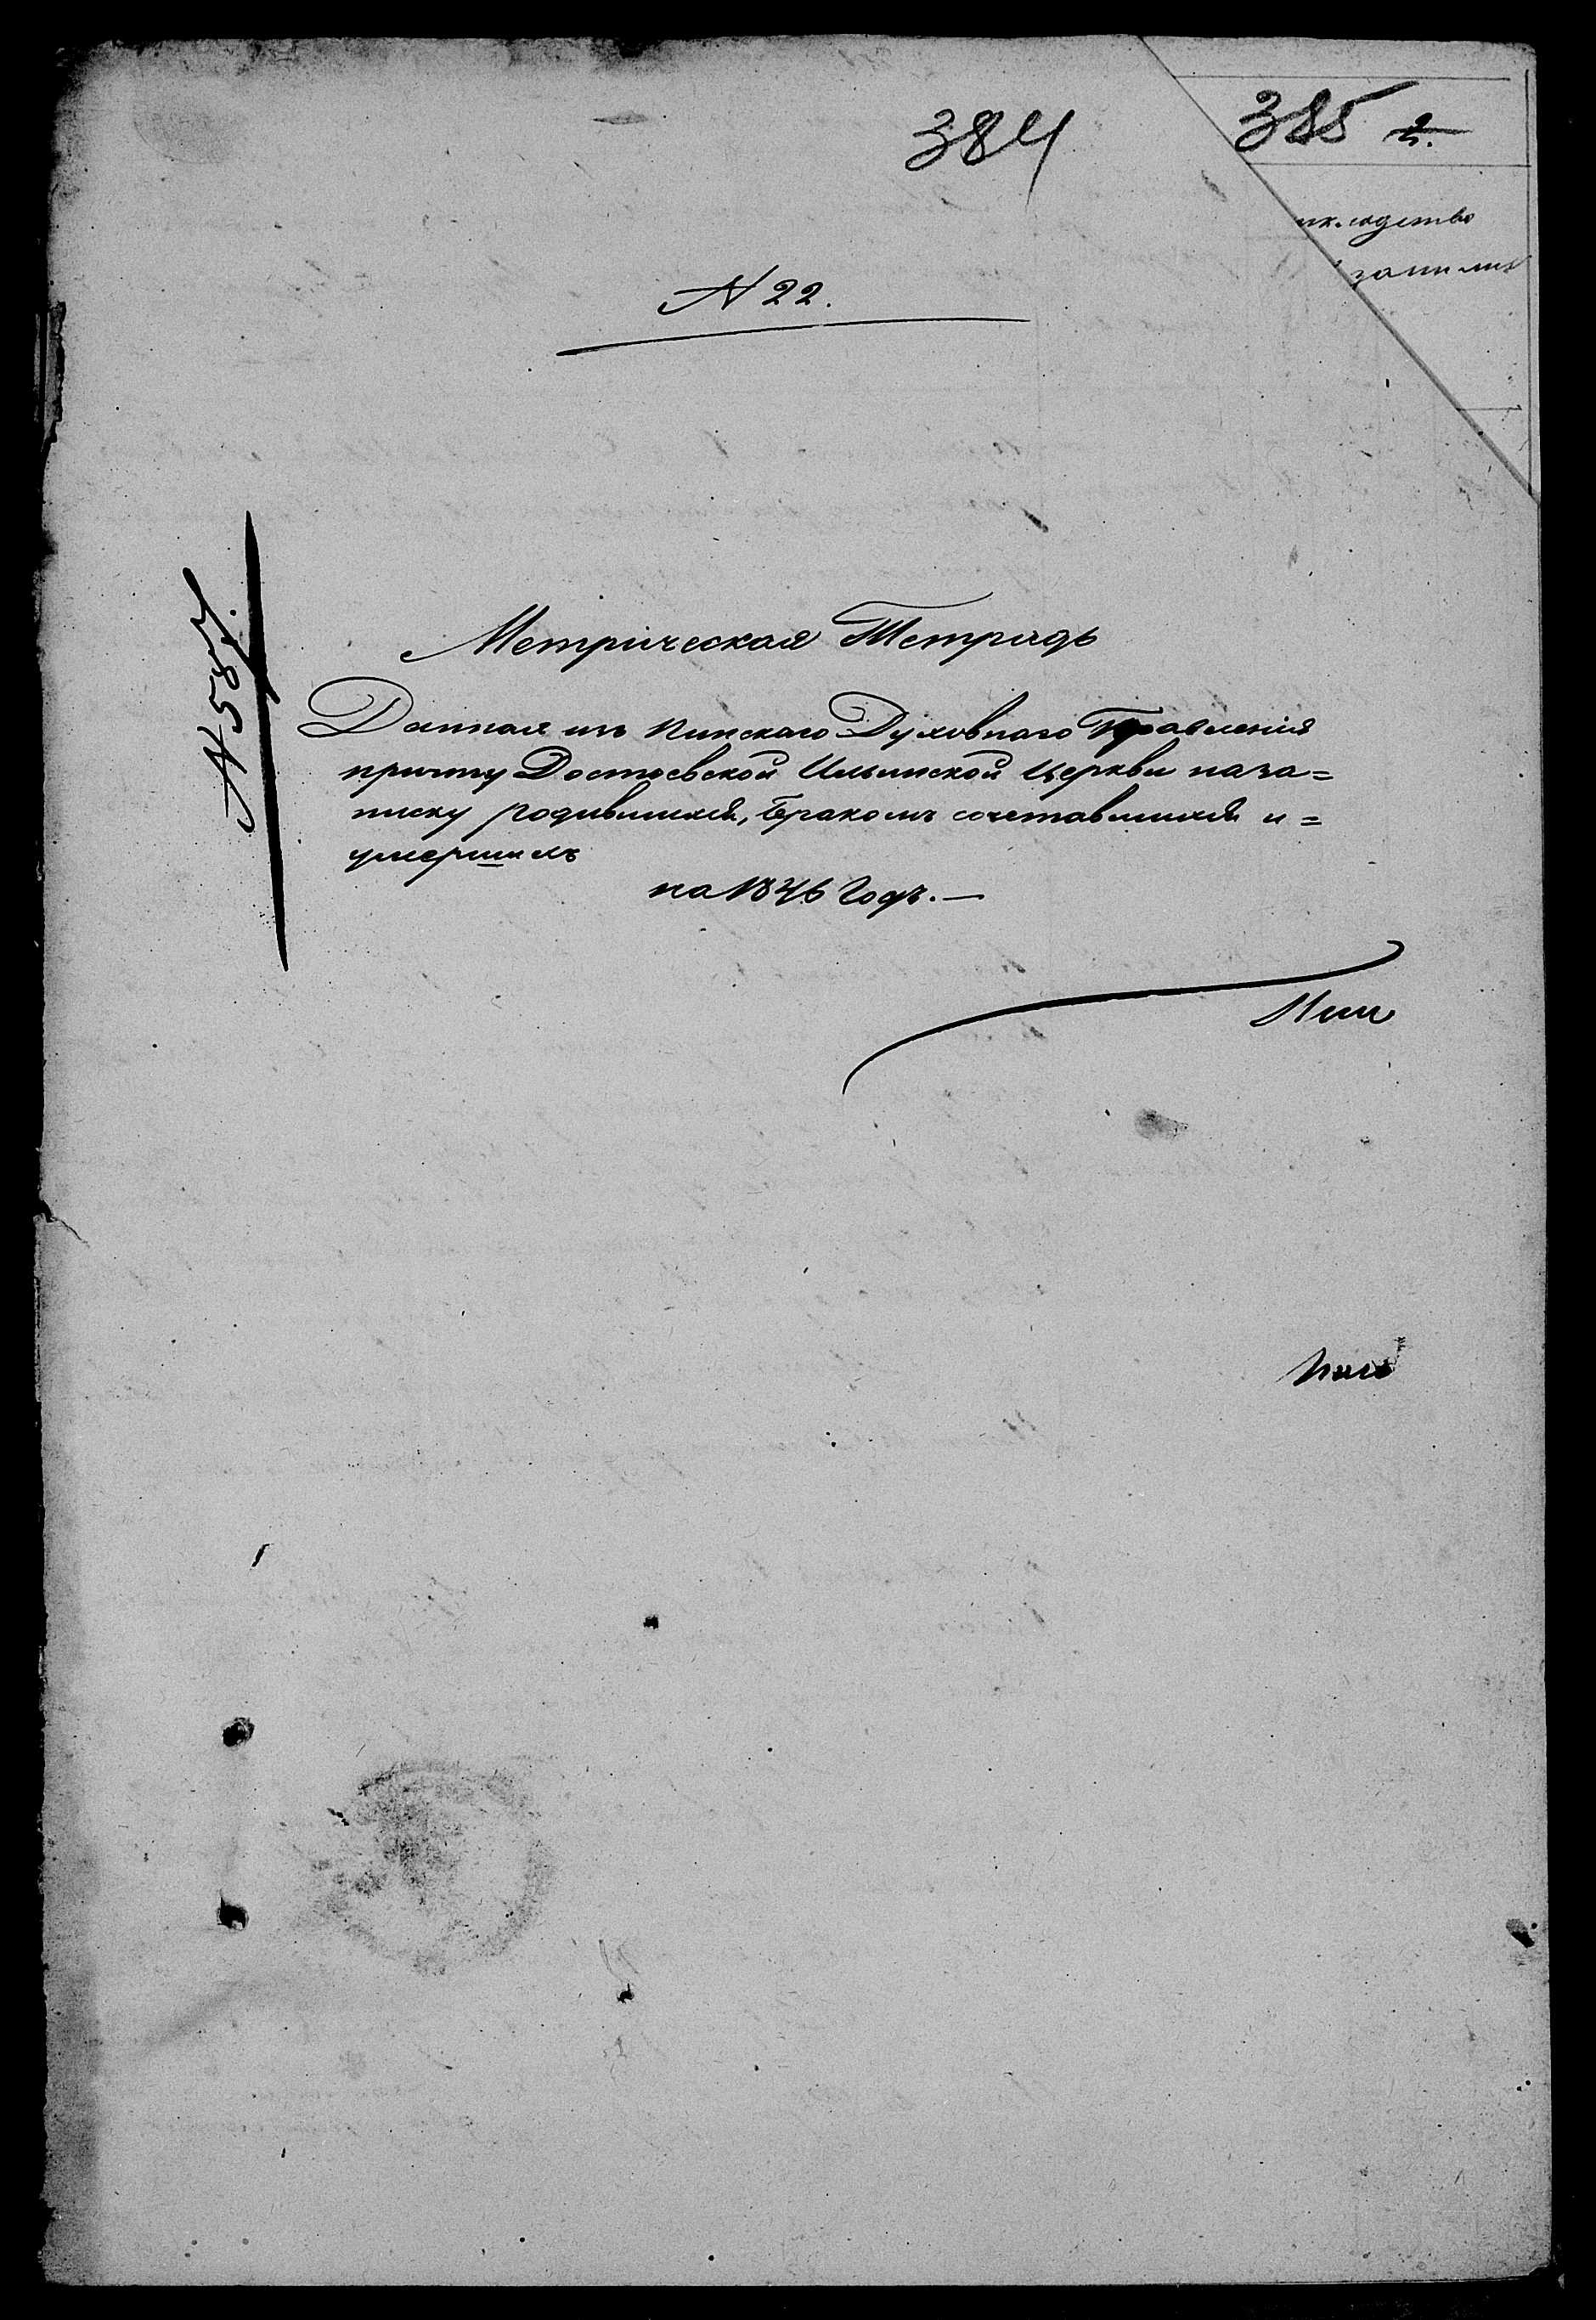 384
385
N 22.
N 587.
Метрическая Тетрадь
Данная изъ Пинскаго Духовнаго Правленія
причту Достоевской Ильинской Церкви на за=
писку родившихся, бракомъ сочетавшихся и=
умершихъ
на 1846 Годъ.—